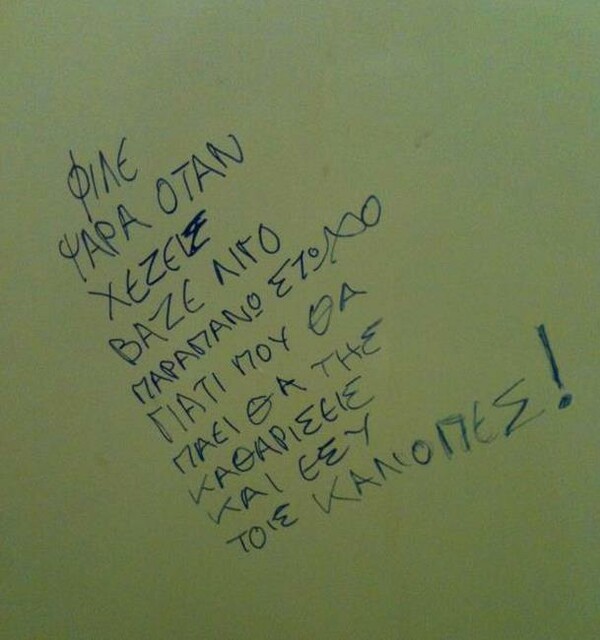 ΦΙΛΕ
ΨΑΡΑ ΟΤΑΝ
ΧΕΖΕΙΣ
ΒΑΖΕ ΛΙΓΟ
ΠΑΡΑΠΑΝΩ ΣΤΩΧΟ
ΓΙΑΤΙ ΠΟΥ ΘΑ
ΠΑΕΙ ΘΑ ΤΗΣ
ΚΑΘΑΡΙΣΕΙΣ
ΚΑΙ ΕΣΥ
ΤΟΙΣ ΚΑΛΙΟΠΕΣ!